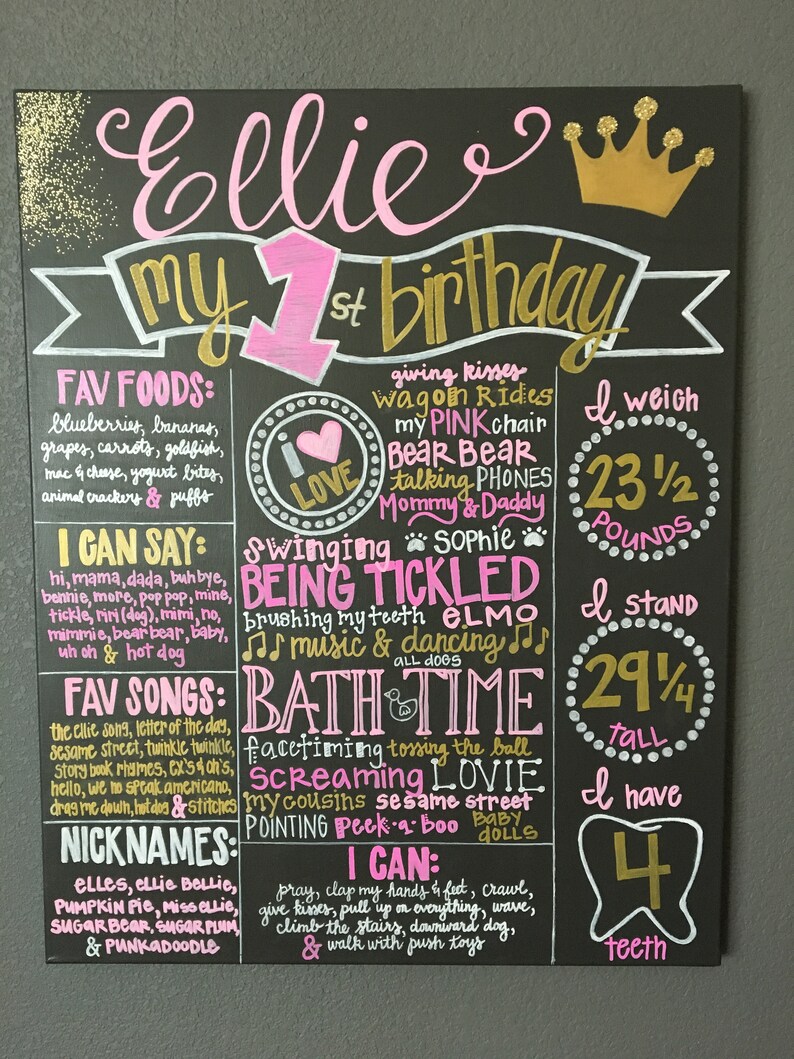 Ellie
my 1st birthday
FAV FOODS:
blueberries, bananas,
grapes, carrots, goldfish,
mac & cheese, yogurt bites,
animal crackers & puffs
I CAN SAY:
hi, mama, dada, buh bye,
bennie, more, pop pop, mine,
tickle, riri (dog), mimi, no,
mimmie, bear bear, baby,
uh oh & hot dog
FAV SONGS:
the ellie song, letter of the day,
sesame street, twinkle twinkle,
story book rhymes, ex's & oh's,
hello, we no speak americano,
drag me down, hot dog & stitches
NICKNAMES:
elles, ellie bellie,
PUMPKIN PIE, miss ellie,
SUGAR BEAR, SUGAR PLUM,
& PUNKADOODLE
I
LOVE
giving kisses
wagon Rides
my PINK chair
BEAR BEAR
talking PHONES
Mommy & Daddy
swinging SOPHIE
BEING TICKLED
brushing my teeth ELMO
music & dancing
ALL DOGS
BATH TIME
facetiming tossing the ball
screaming LOVIE
my cousins sesame street
POINTING peek-a-boo BABY
DOLLS
I CAN:
pray, clap my hands & feet, crawl,
give kisses, pull up on everything, wave,
climb the stairs, downward dog,
& walk with push toys
I WEIGH
23 1/2
POUNDS
I STAND
29 1/4
TALL
I have
4
teeth